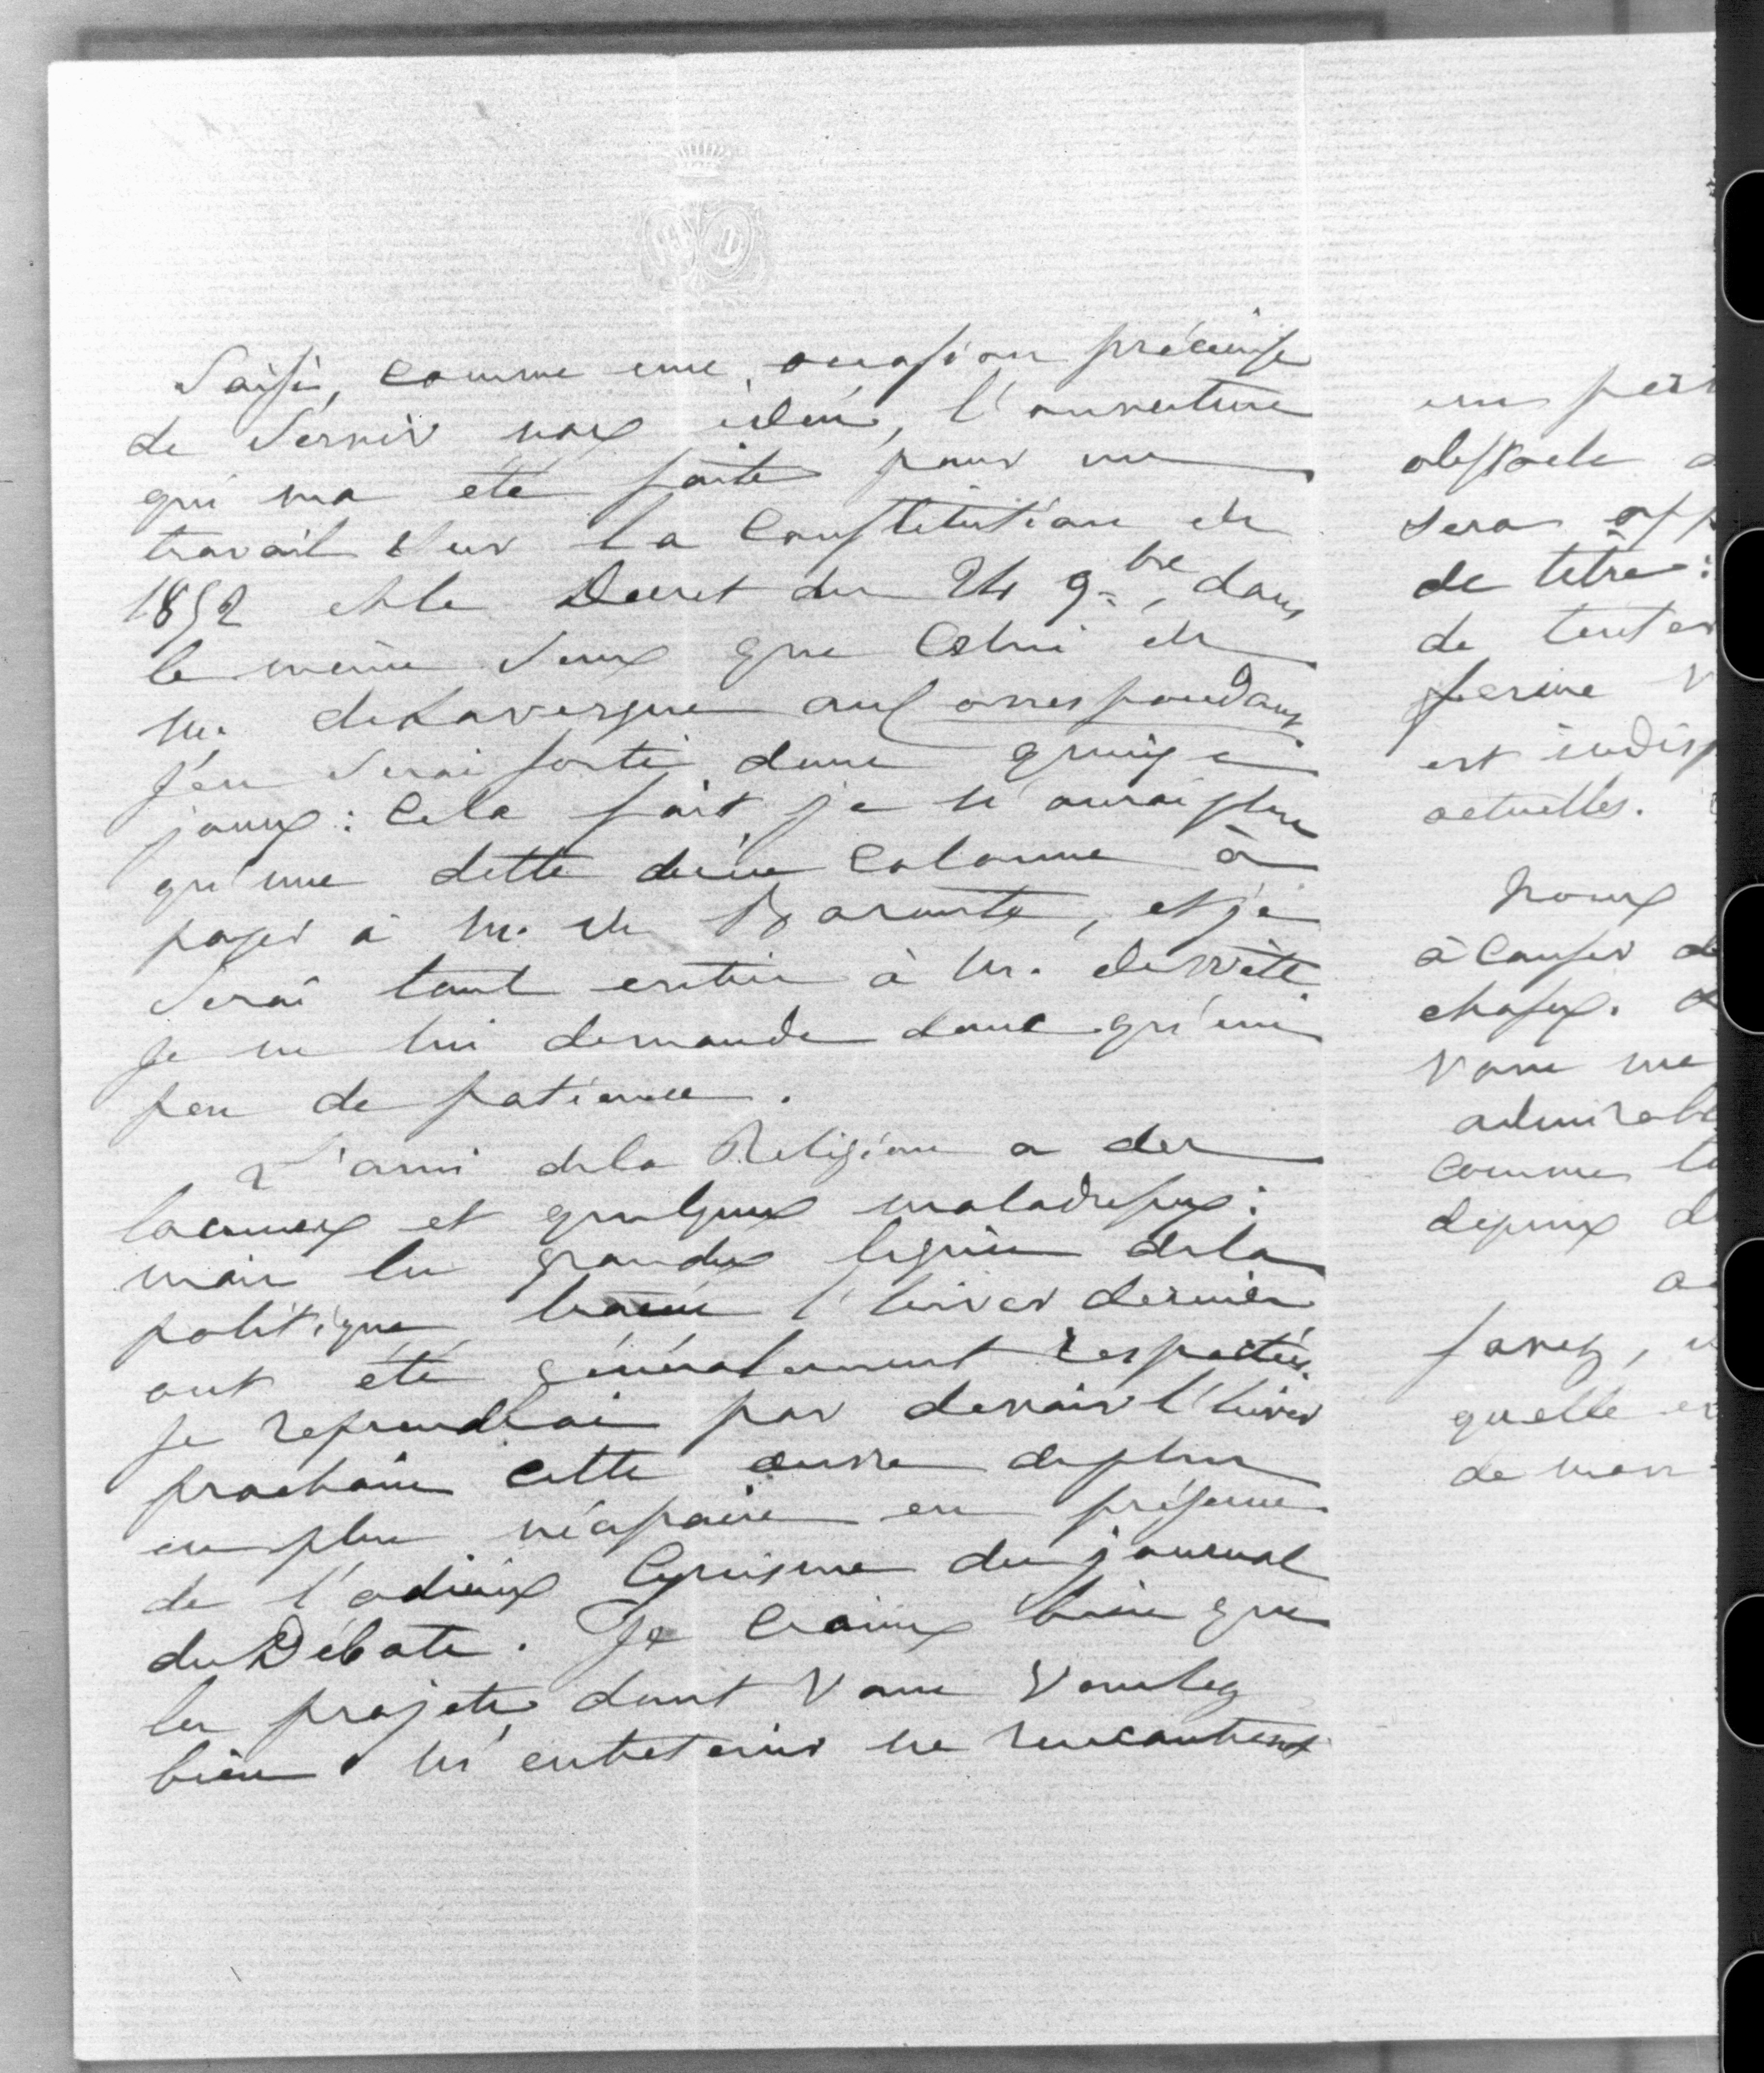 Saisi, comme une occasion précieuse
de Servir nos idées, l'ouverture
qui m'a été faite pour un
travail Sur la Constitution de
1852 et le Décret du 24 9bre, dans
le même Sens que Celui de
M. de Lavergne au Correspondant
J'en Serai sorti dans quinze
jours : Cela fait je n'aurai plus
qu'une dette d'une Colonne à
payer à M. de Barante, et je
Serai tout entier à M.
Je ne lui demande donc qu'un
peu de patience.
L'ami de la Religion a des
lacunes et quelques maladresses :
mais les grandes lignes de la
politique tracée l'hiver dernier
ont été généralement respectées.
Je reprendrai par devoir l'hiver
prochain cette œuvre de plus
en plus nécessaire en présence
de l'odieux Cynisme du journal
des Débats. Je Crains bien que
les projets dont Vous Voulez
bien m'entretenir ne rencontrent
un
obstacle
sera
de titre :
de
ferme
est
actuelles.
Nous
à Causer
choses.
Vous me
comme
depuis
quelle
de mon